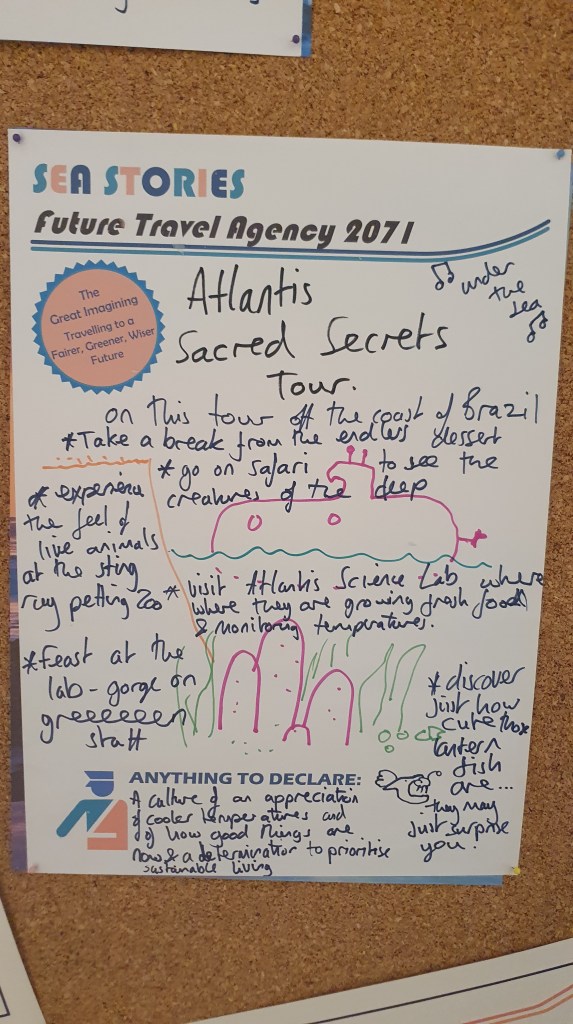 SEA STORIES
Future Travel Agency 2071
The
Great Imagining
Travelling to a
Fairer, Greener, Wiser
Future
Atlantis
Sacred Secrets
Tour.
♫ under
the
sea ♫
on this tour off the coast of Brazil
*Take a break from the endless dessert
* go on safari to see the
creatures of the deep
* experience
the feel of
live animals
at the sting
ray petting zoo
* visit Atlantis Science Lab where
where they are growing fresh food
& monitoring temperatures.
*Feast at the
lab-gorge on
greeeeeen
stuff
* discover
just how
cute those
lantern
fish
are...
they may
just surprise
you!
ANYTHING TO DECLARE:
A culture of an appreciation
of cooler temperatures and
of how good things are
now & a determination to prioritise
sustainable living